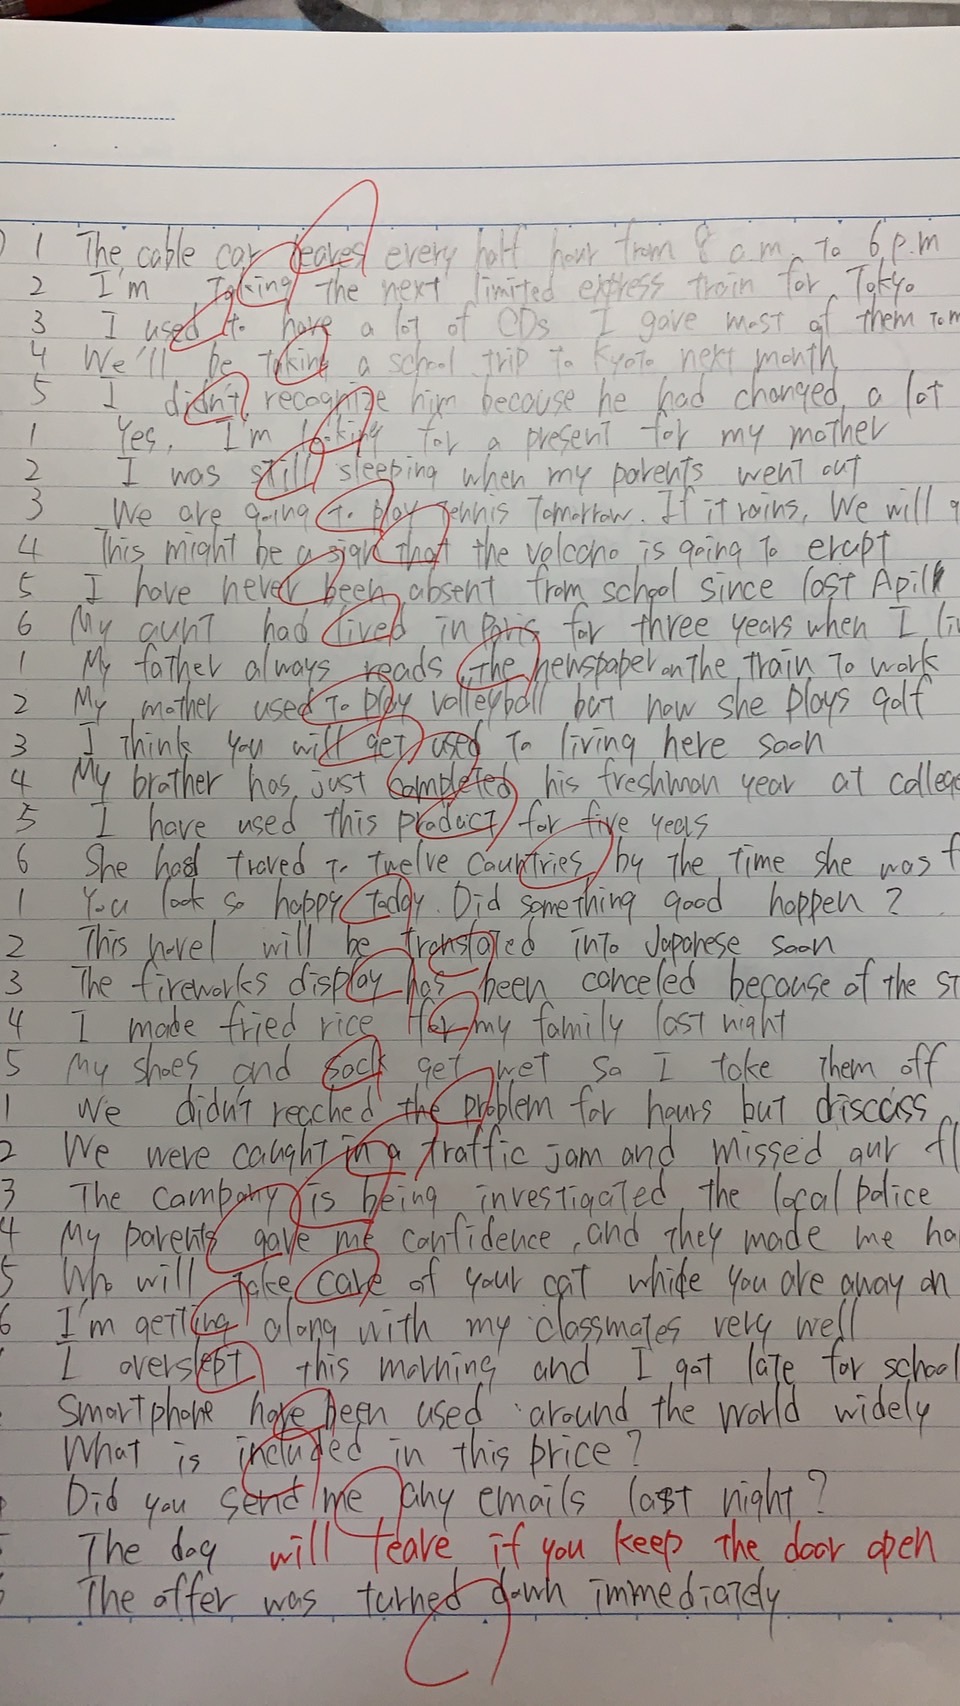 1 The cable car leaves every half hour from 8 a.m. to 6 p.m
2 I'm Taking the next limited express train for Tokyo
3 I used to have a lot of CDs I gave most of them
4 We'll be taking a school trip to Kyoto next month
5 I didn't recognize him because he had changed a lot
1 Yes, I'm looking for a present for my mother
2 I was still sleeping when my parents went out
3 We are going to play tennis tomorrow. If it rains, We will
4 This might be a sign that the volcano is going to erupt
5 I have never been absent from school since last Apill
6 My aunt had lived in Paris for three years when I
1 My father always reads the newspaper on the train to work
2 My mother used to play volleyball but now she plays golf
3 I think you will get used to living here soon
4 My brather has just completed his freshman year at college
5 I have used this product for five years
6 She had traved to twelve countries by the time she was
1 You look so happy today. Did something good happen?
2 This novel will be translated into Japanese soon
3 The fireworks display has been canceled because of the
4 I made fried rice for my family last night
5 My shoes and sock get wet so I take them off
1 We didn't reached the problem for hours but discuss
2 We were caught in a traffic jam and missed our
3 The company is being investigated the local police
4 My parents gave me confidence, and they made me
5 Who will take care of your cat while you are away on
6 I'm getting along with my classmates very well
I overslept this morning and I got late for school
Smartphone have been used around the world widely
What is included in this price?
Did you send me any emails last night?
The dog will leave if you keep the door open
The offer was turned down immediately